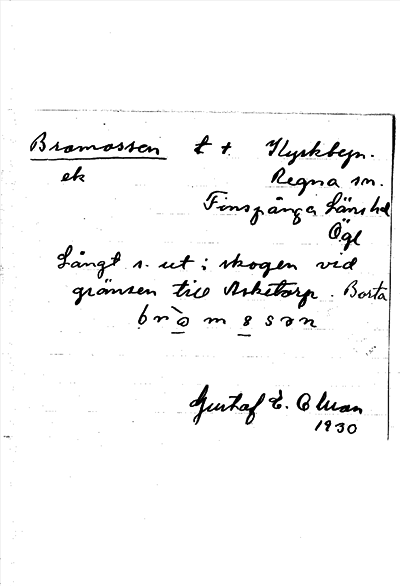 Bromossen t + Kyrkbyn.
ek Regna sn.
Finspånga Läns hd
Ögl
Långt s. ut i skogen vid
gränsen till Asketorp. Borta
Gustaf E. Olman
1930